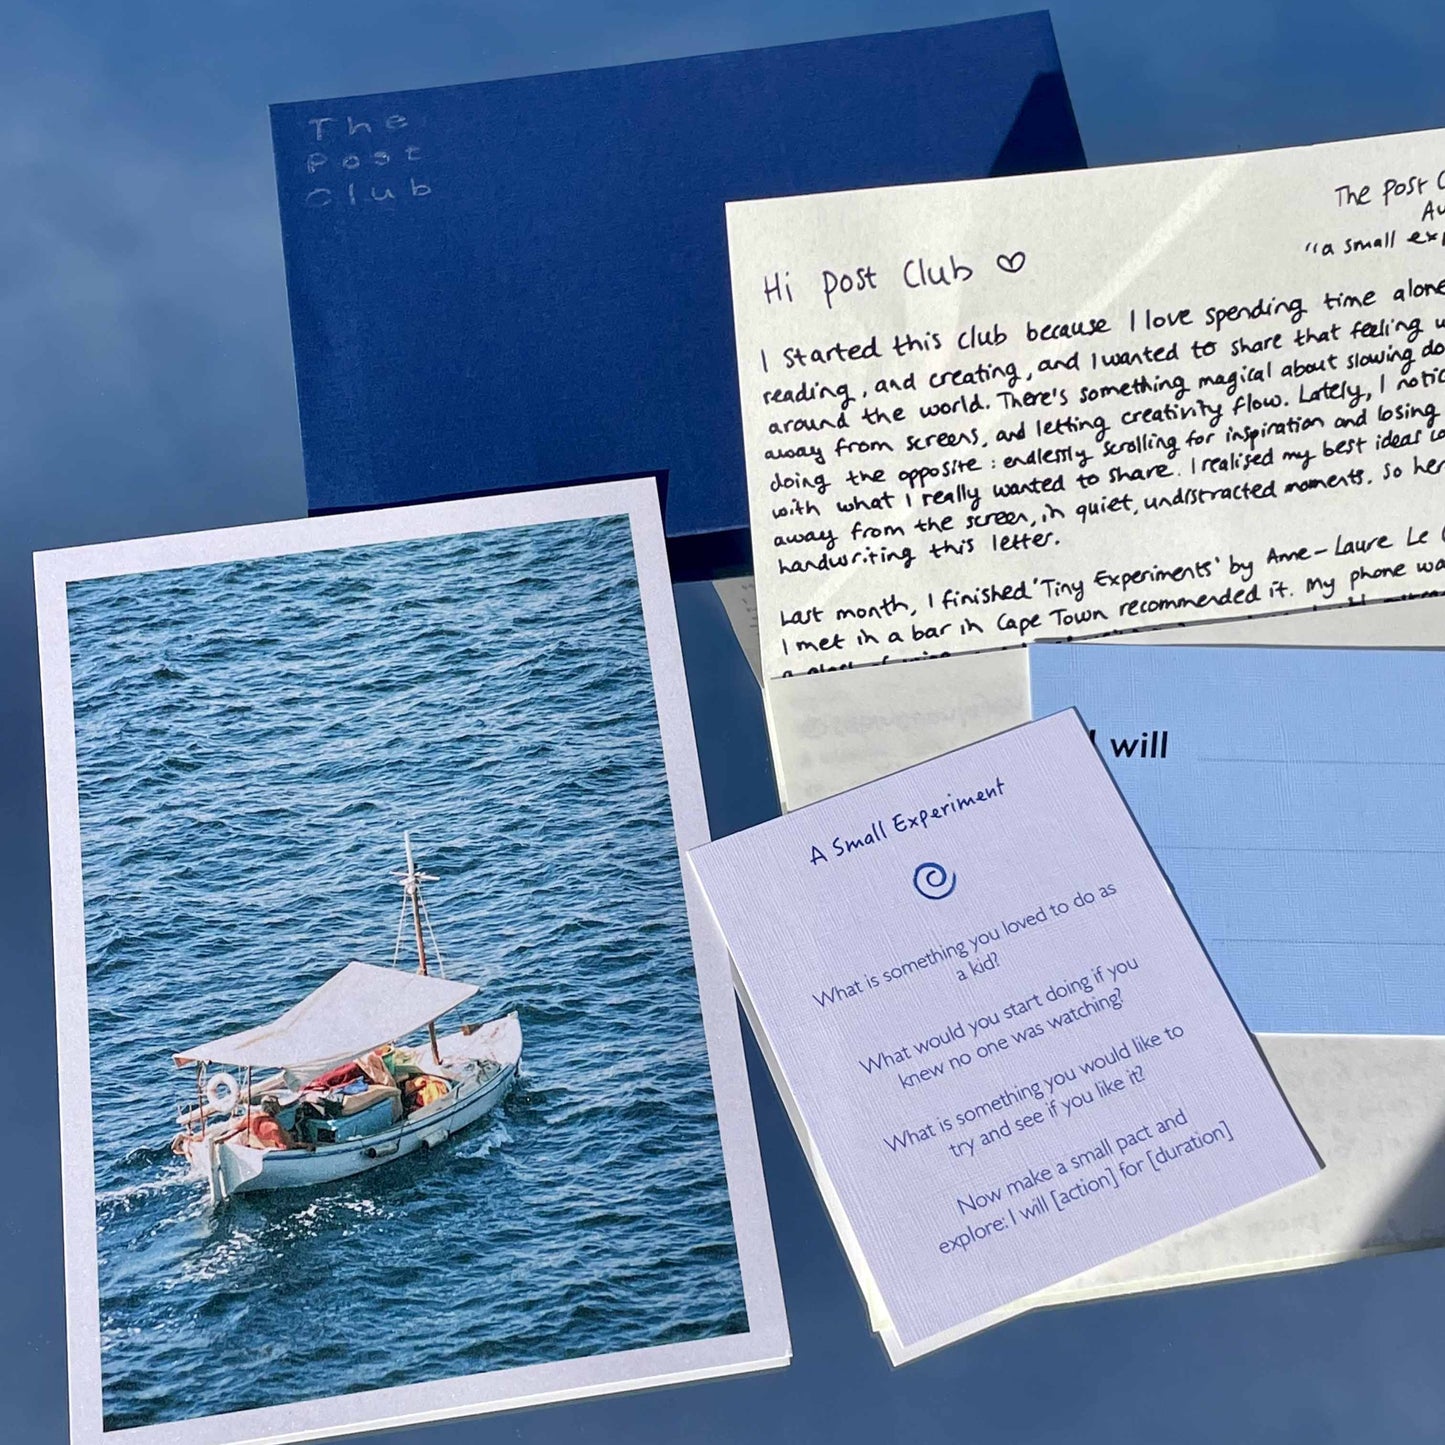 The
Post
Club
The Post
"a small
Hi Post Club
I started this club because I love spending time alone
reading, and creating, and I wanted to share that feeling
around the world. There's something magical about slowing
away from screens, and letting creativity flow. Lately, I
doing the opposite: endlessly scrolling for inspiration and losing
with what I really wanted to share. I realised my best ideas
away from the screen, in quiet, undistracted moments. So
handwriting this letter.
Last month, I finished 'Tiny Experiments' by Anne-Laure Le
I met in a bar in Cape Town recommended it. My phone
I will
A Small Experiment
What is something you loved to do as
a kid?
What would you start doing if you
knew no one was watching?
What is something you would like to
try and see if you like it?
Now make a small pact and
explore: I will [action] for [duration]